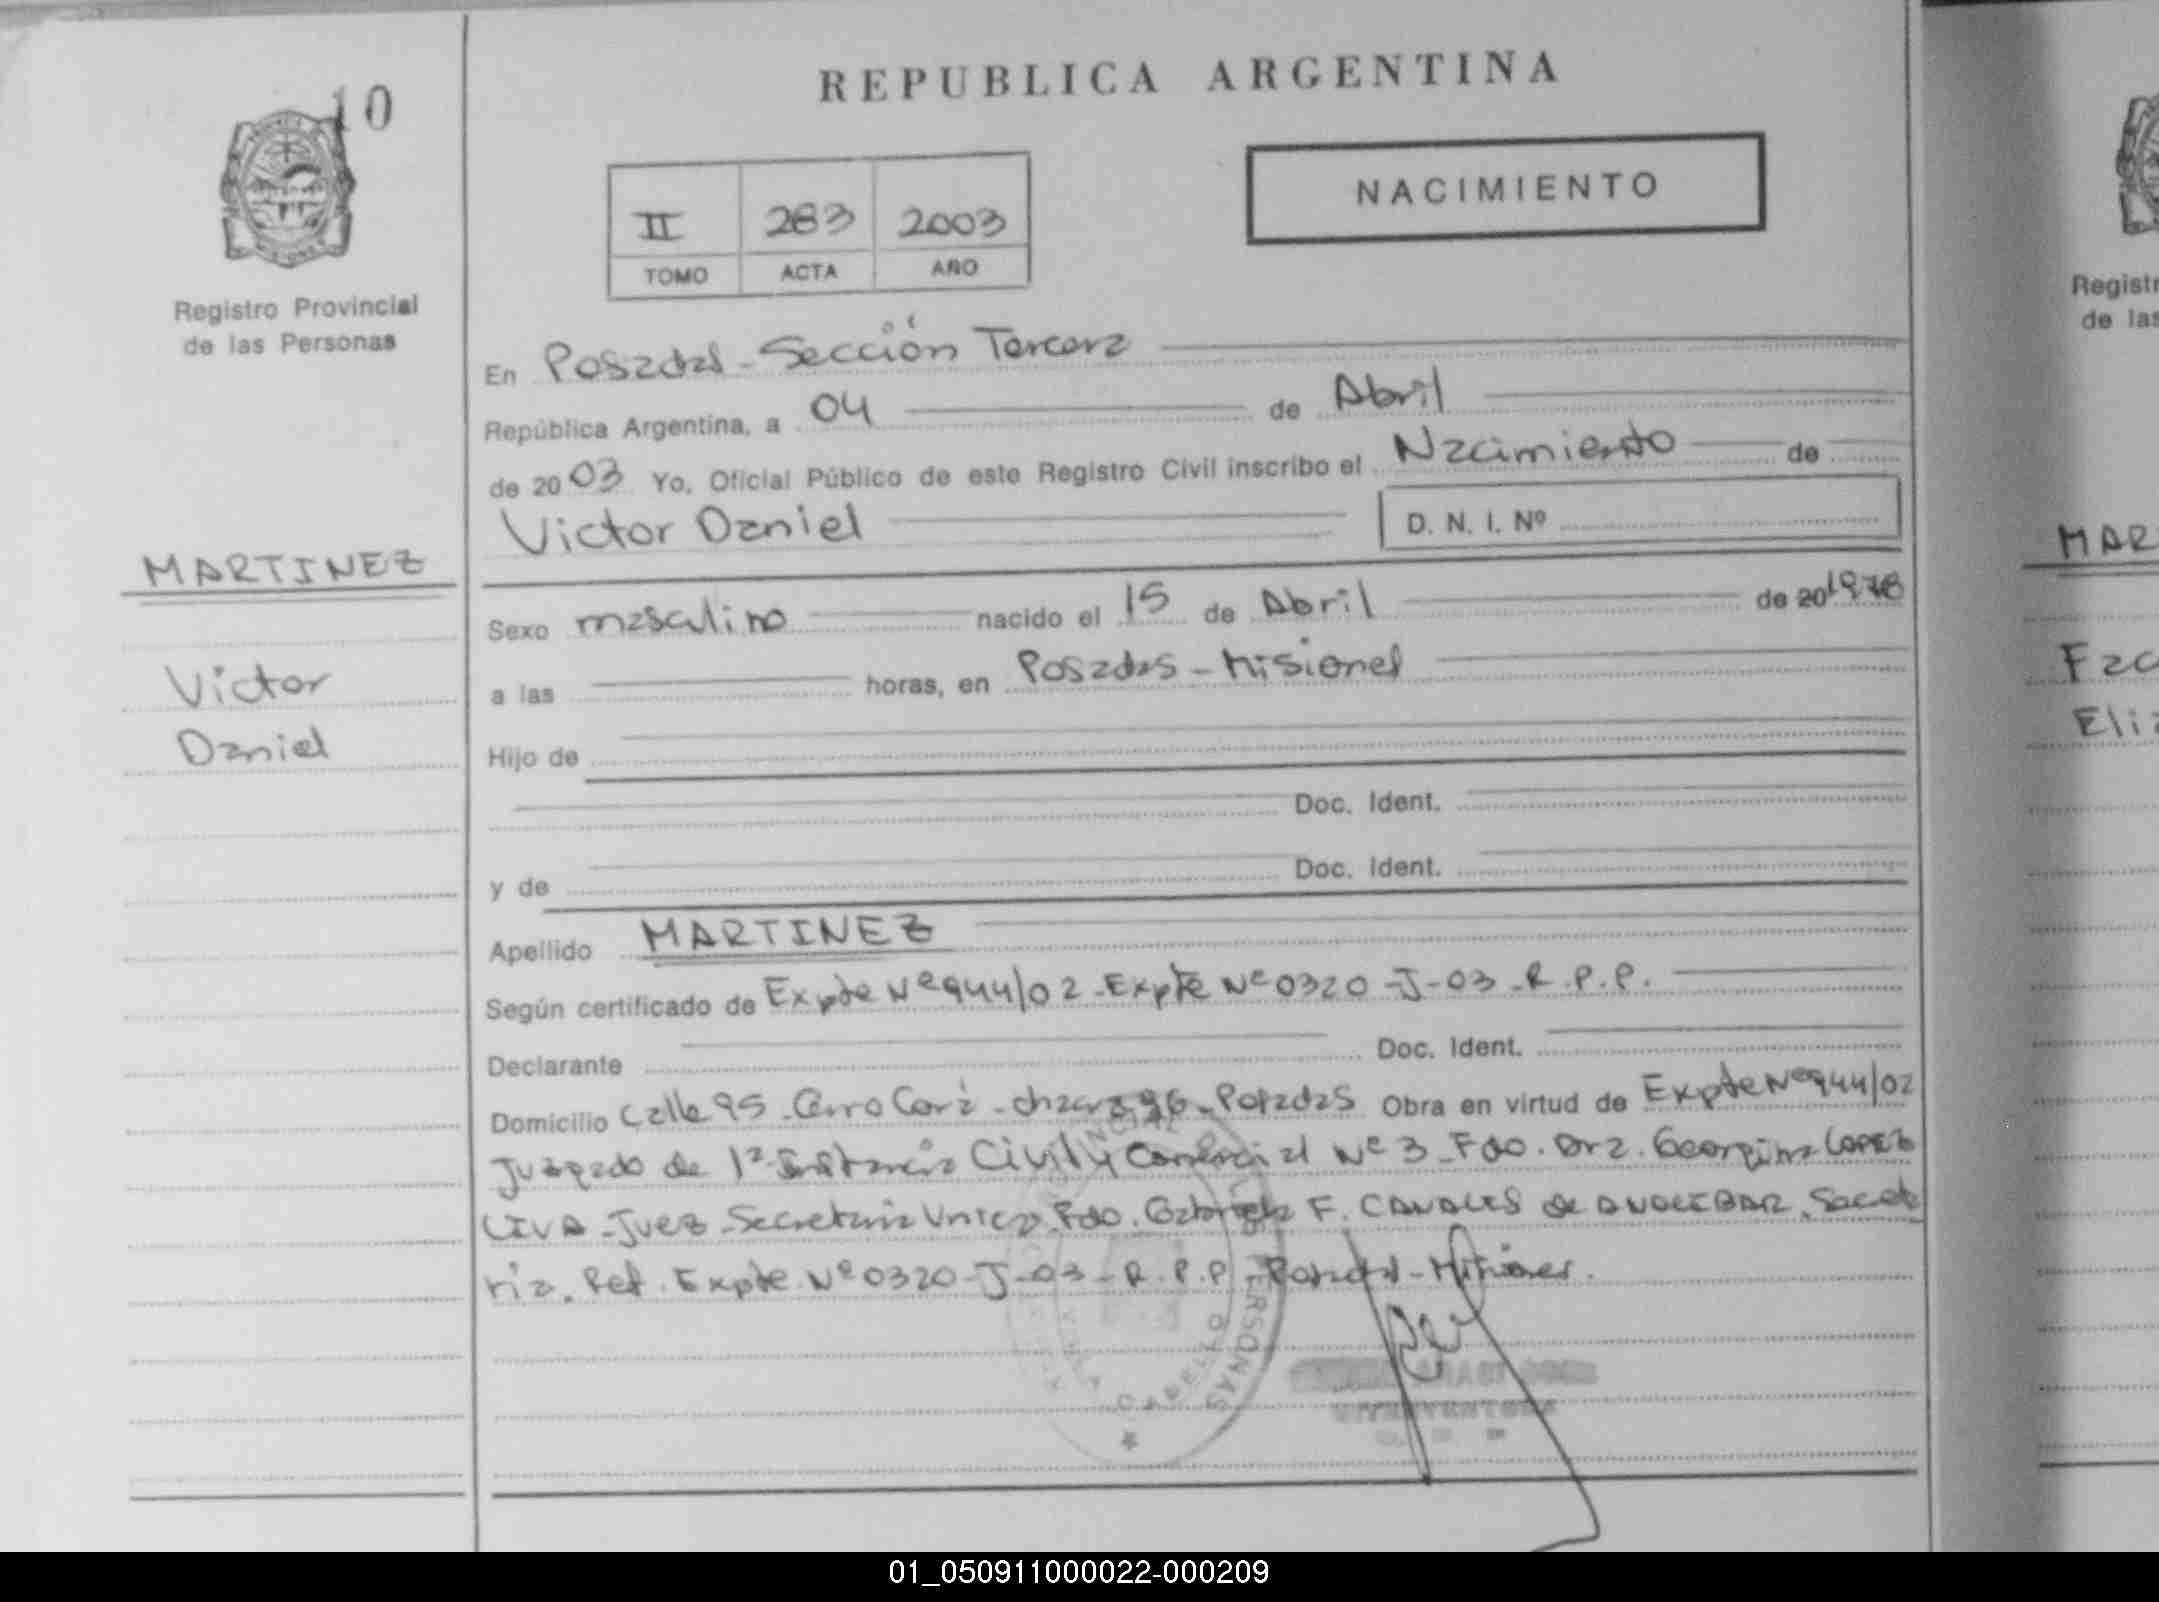 REPUBLICA ARGENTINA
10
NACIMIENTO
II 283 2003
TOMO ACTA AÑO
Registro Provincial
de las Personas
En Posadas - Sección Tercera
República Argentina, a 04 de Abril
de 2003 Yo, Oficial Público de este Registro Civil inscribo el Nacimiento de
Victor Daniel D. N. I. Nº
MARTINEZ
Sexo masculino nacido el 15 de Abril de 20 1978
Victor
a las horas, en Posadas - Misiones
Daniel
Hijo de
Doc. Ident.
y de Doc. Ident.
Apellido MARTINEZ
Según certificado de Expte Nº 944/02 - Expte Nº 0320 - J - 03 - R. P. P.
Declarante Doc. Ident.
Domicilio Calle 95 - Cerro Corá - chacra 96 - Posadas Obra en virtud de Expte Nº 944/02
Juzgado de 1ª Instancia Civil y Comercial Nº 3 - Fdo. Dra. Georgina LOPEZ
LIVA - Juez - Secretaria Unica Fdo. Gabriela F. CANALES de Secreta
ria. Ref. Expte. Nº 0320 - J - 03 - R. P. P. - Posadas - Misiones.
PERSONAS
VILLA CABELLO
Registr
de las
MAR
Fac
Eli
01_050911000022-000209